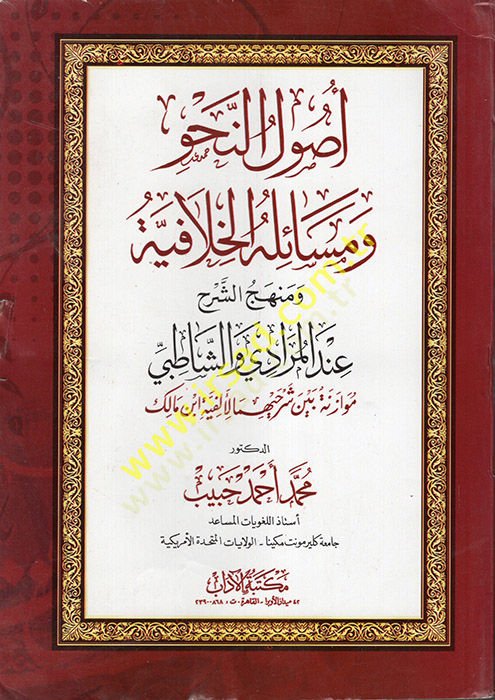 أُصُولُ النَّحْوِ
وَمَسَائِلُهُ الخِلَافِيَّةُ
وَمَنهَجُ الشَّرْحِ
عِنْدَ المُرَادِيِّ وَالشَّاطِبِيِّ
مُوَازَنَةٌ بَيْنَ شَرْحَيْهِمَا لِأَلْفِيَّةِ ابْنِ مَالِكٍ
الدكتور
مُحَمَّد أَحْمَد حَبِيب
أستاذ اللغويات المساعد
جامعة كليرمونت مكينا - الولايات المتحدة الأمريكية
مكتبة الآداب
٤٢ ميدان الأوبرا - القاهرة ، ت : ٢٣٩٠٠٨٦٨